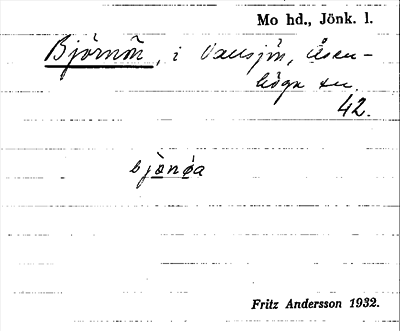 Mo hd., Jönk. l.
Björnön, i Vallsjön, Åsen-
höga sn.
42.
bjònǿa
Fritz Andersson 1932.